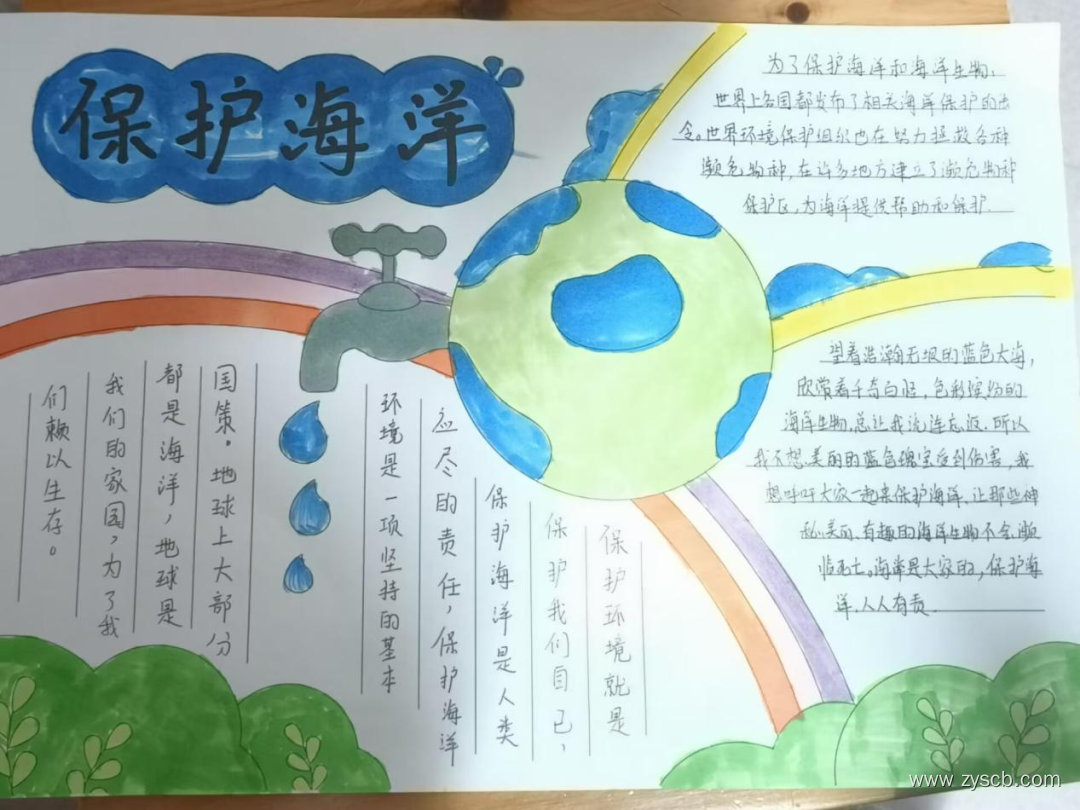 保护海洋
为了保护海洋和海洋生物,
世界上各国都发布了相关海洋保护的法
令。世界环境保护组织也在努力拯救各种
濒危物种,在许多地方建立了濒危物种
保护区,为海洋提供帮助和保护.
望着浩瀚无垠的蓝色大海,
欣赏着千奇百怪,色彩缤纷的
海洋生物,总让我流连忘返.所以
我不想美丽的蓝色瑰宝受到伤害,我
想呼吁大家一起来保护海洋,让那些神
秘、美丽、有趣的海洋生物不会濒
临死亡。海洋是大家的,保护海
洋,人人有责.
保护环境就是
保护我们自己,
保护海洋是人类
应尽的责任,保护海洋
环境是一项坚持的基本
国策。地球上大部分
都是海洋,地球是
我们的家园,为了我
们赖以生存。
www.zyscb.com